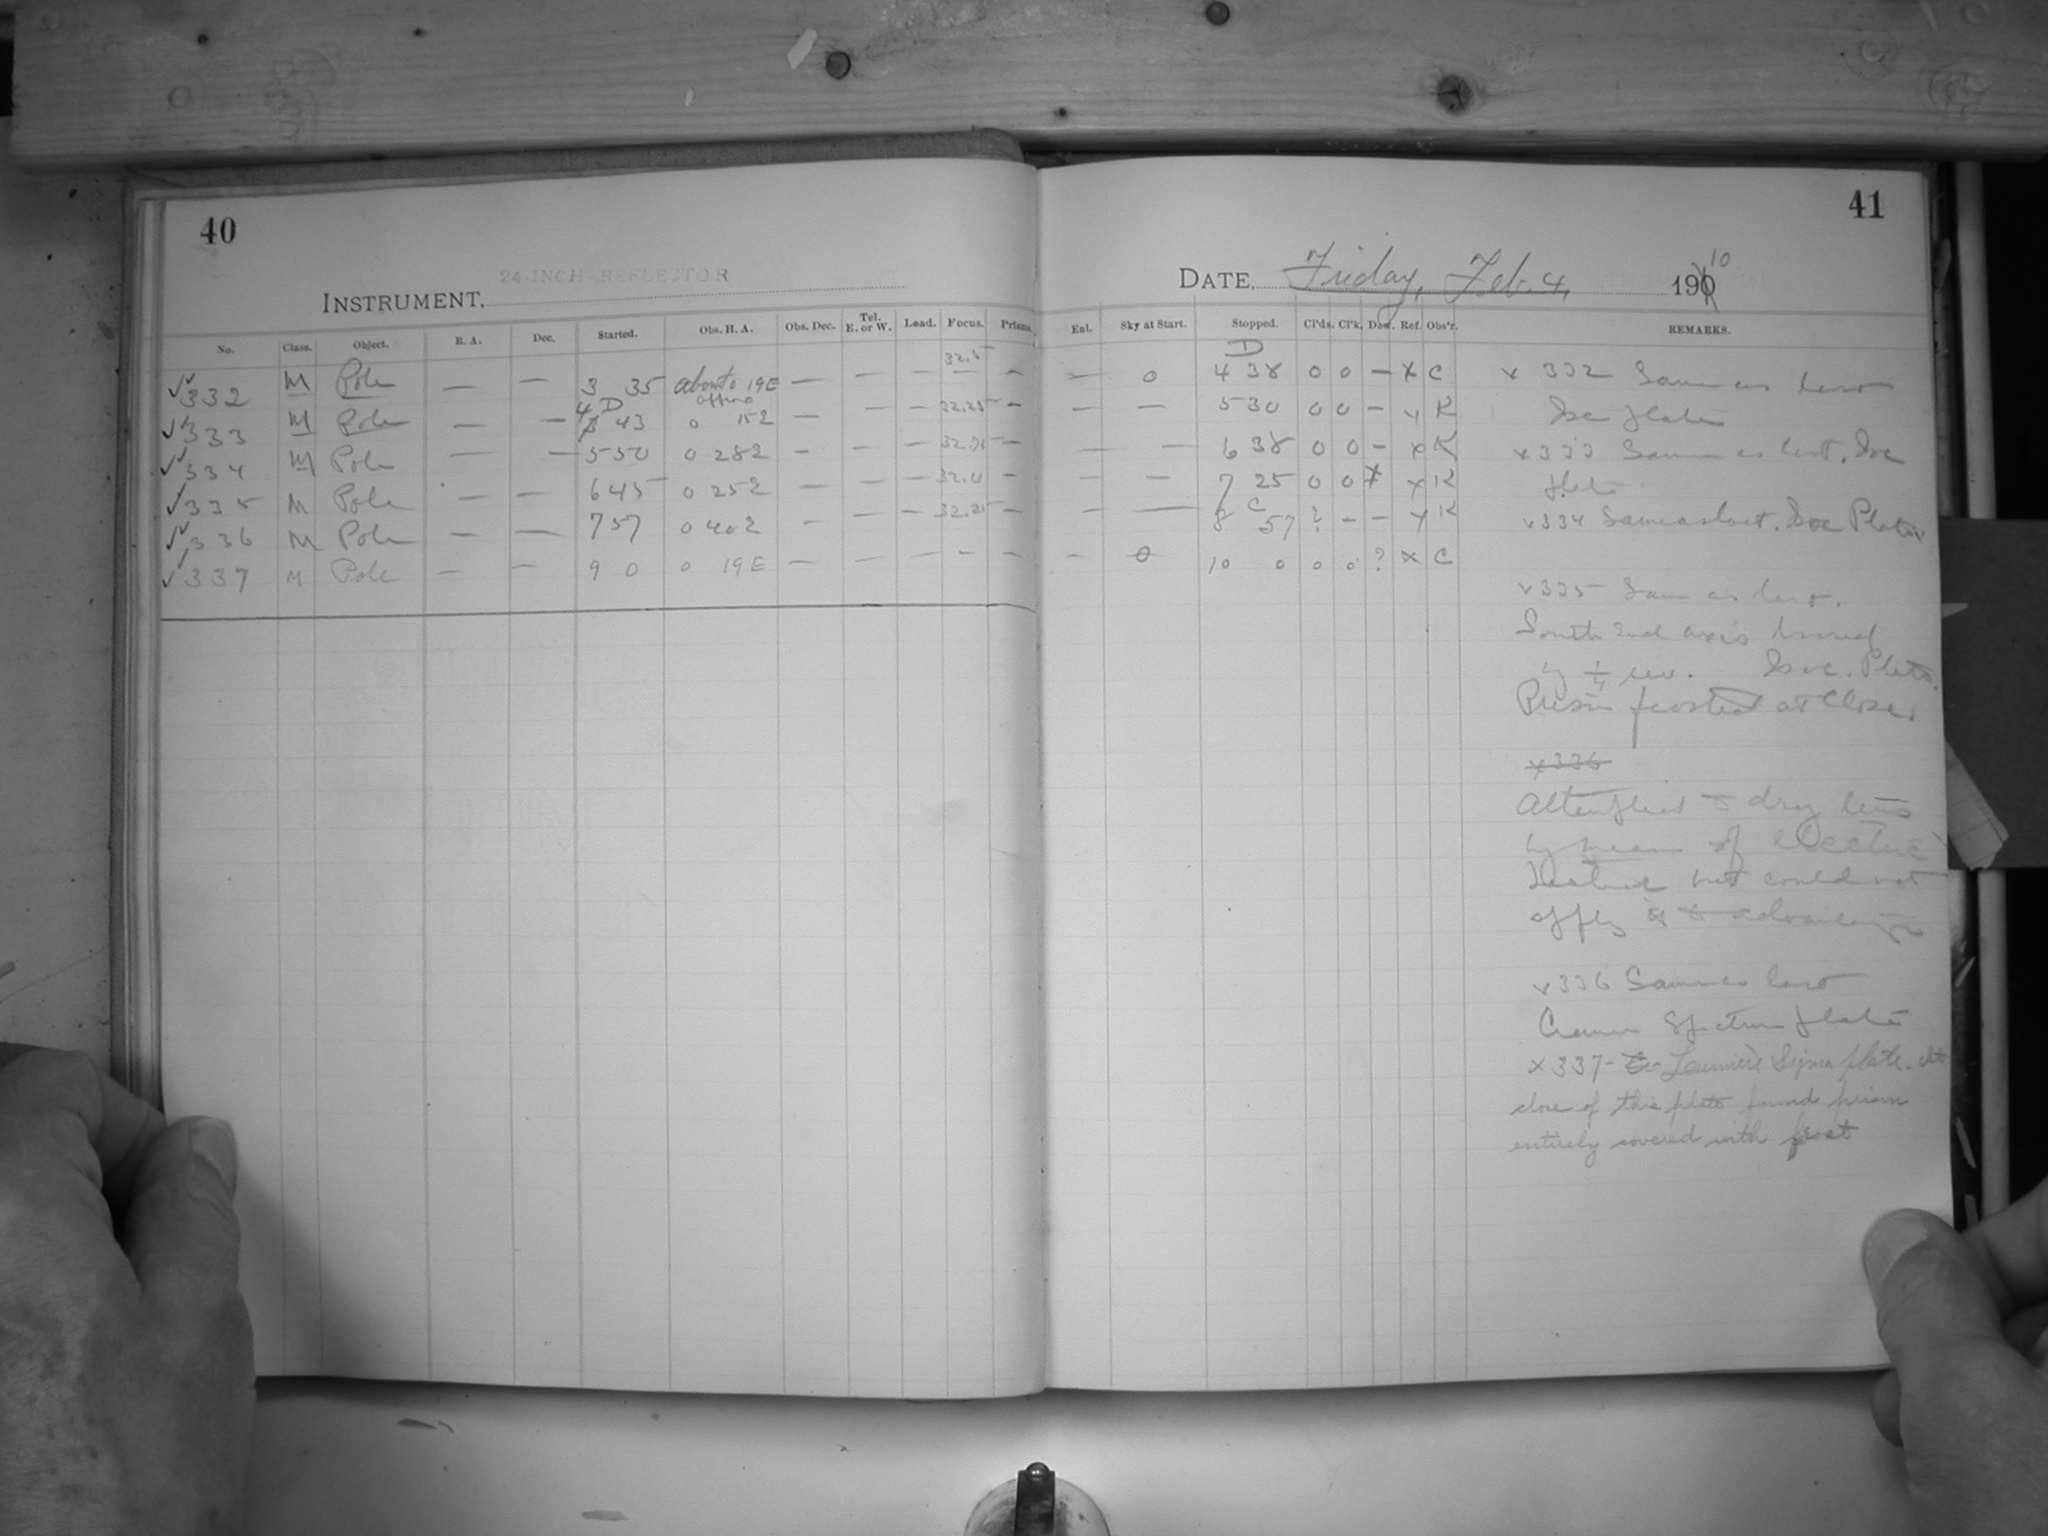 40
41
24-INCH REFLECTOR
INSTRUMENT,
DATE, Friday, Feb. 4, 1910
No. Class. Object. R. A. Dec. Started. Obs. H. A. Obs. Dec. Tel. E. or W. Lead. Focus. Prisms Ent. Sky at Start. Stopped. Cl'ds. Cl'k. Dew. Ref. Obs'r. REMARKS.
332 M Pole — — 3 35 about 0 19E — — — 32.5 — — 0 4 38 0 0 — x C
333 M Pole — — 4 43 0 15 — — — 32.25 — — — 5 30 0 0 — x K
334 M Pole — — 5 50 0 28 — — — — — — 6 38 0 0 — x K
335 M Pole — — 6 45 0 25 — — — — — — 7 25 0 0 x K
336 M Pole — — 7 57 0 40 — — — — — — 8 57 ? — — x K
337 M Pole — — 9 0 0 19E — — — — — — 0 10 0 0 0 ? x C
x 332 Same as last
Iso plate
x 333 Same as last. Iso
plate
x 334 Same as last. Iso Plate
x 335 Same as last.
South end axis
by 1/4 rev. Iso. Plate.
Prism frosted at close.
x 336
Attempted to dry lens
by means of electric
but could not
apply it to advantage
x 336 Same as last
Cramer Spectrum plate
x 337 - Lumiere Sigma plate. At
close of this plate found prism
entirely covered with frost